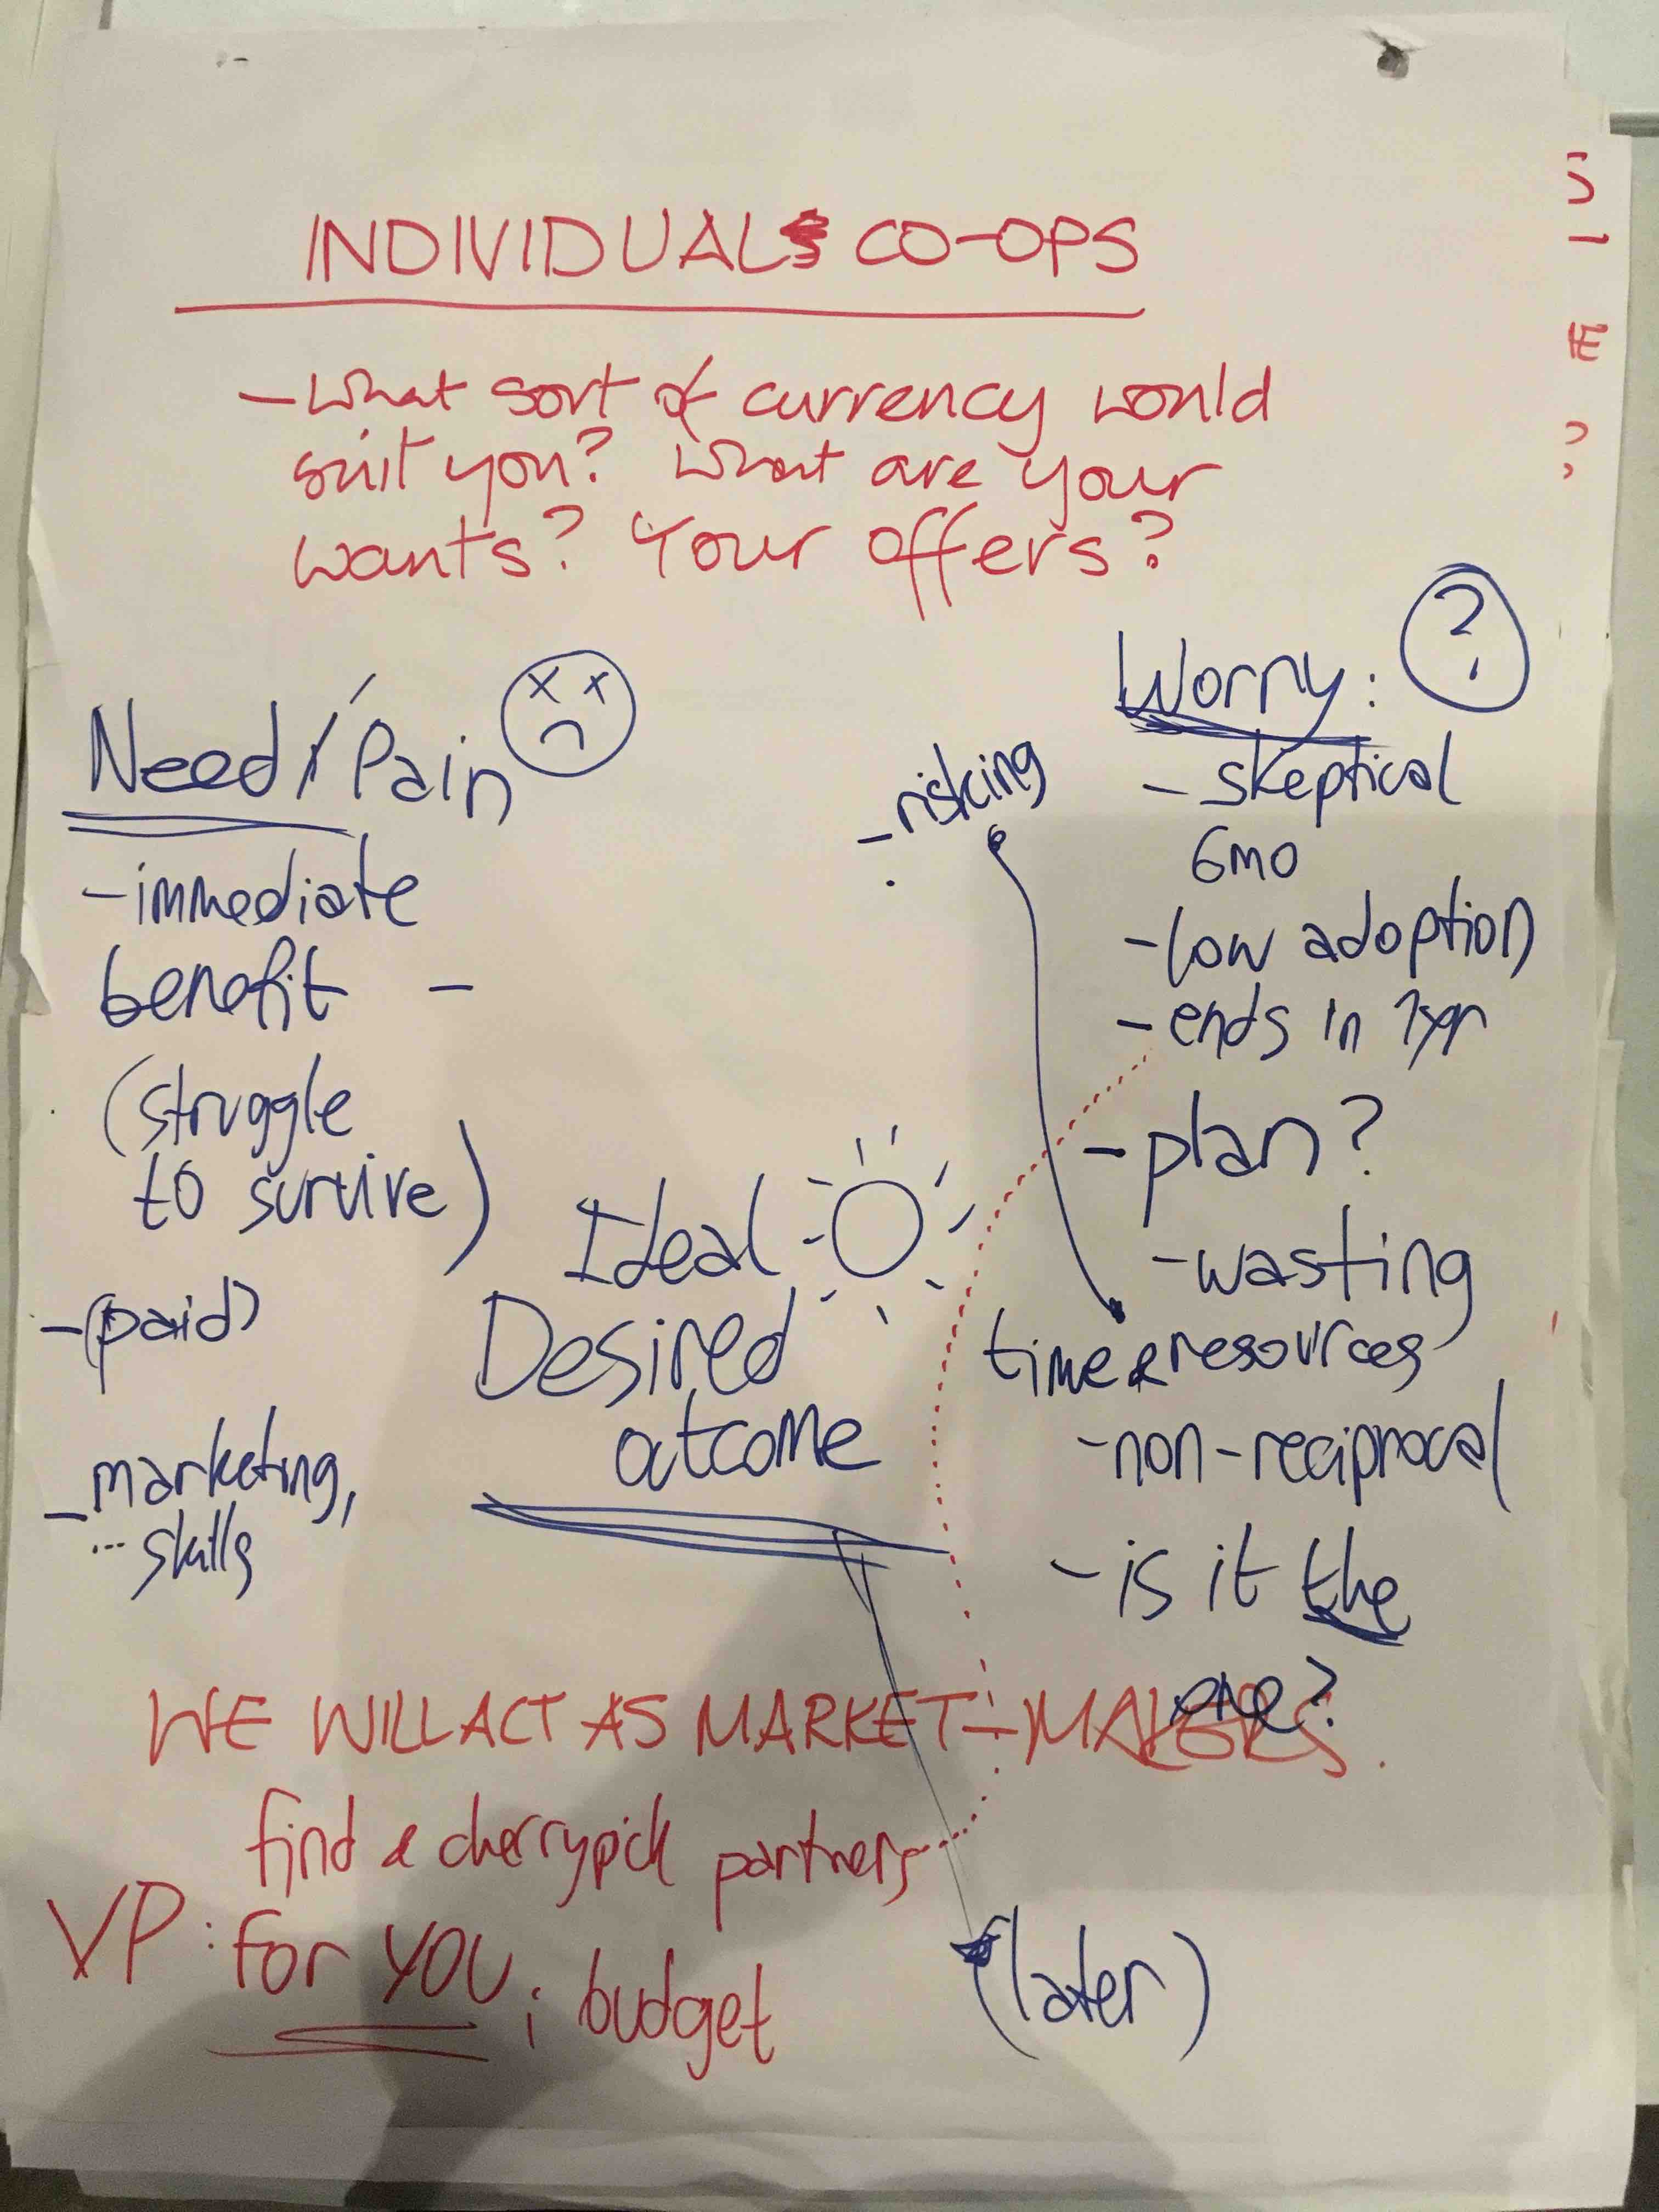 INDIVIDUAL CO-OPS
- What sort of currency would
suit you? What are your
wants? Your offers?
Need / Pain
- immediate
benefit -
(struggle
to survive)
- (paid)
- marketing,
... skills
Ideal
Desired
outcome
- risking
Worry: ?
- skeptical
6mo
- low adoption
- ends in 1yr
- plan?
- wasting
time & resources
- non-reciprocal
- is it the
one?
WE WILL ACT AS MARKET-MAKERS.
find & cherrypick partners
VP: for YOU; budget
(later)
S
E
?